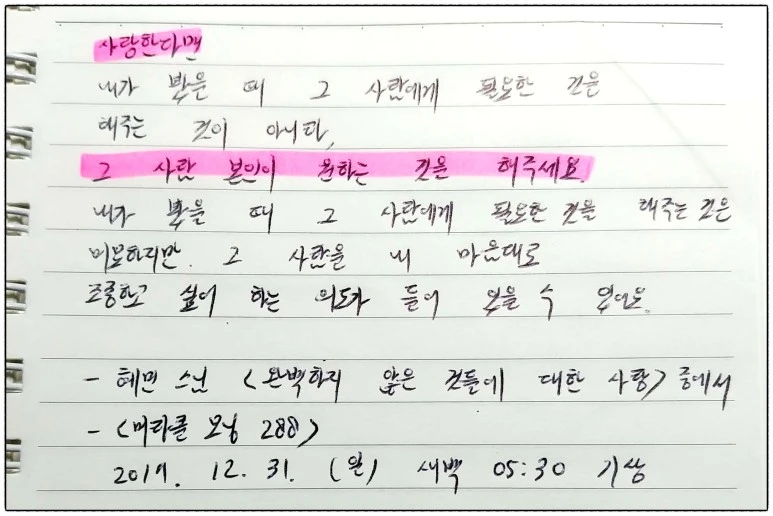 사랑한다면
내가 봤을 때 그 사람에게 필요한 것을
해주는 것이 아니라,
그 사람 본인이 원하는 것을 해주세요.
내가 봤을 때 그 사람에게 필요한 것을 해주는 것은
미묘하지만. 그 사람을 내 마음대로
조종하고 싶어 하는 의도가 들어 있을 수 있어요.
- 혜민 스님 <완벽하지 않은 것들에 대한 사랑> 중에서
- <미라클 모닝 288>
2019. 12. 31. (월) 새벽 05:30 기상